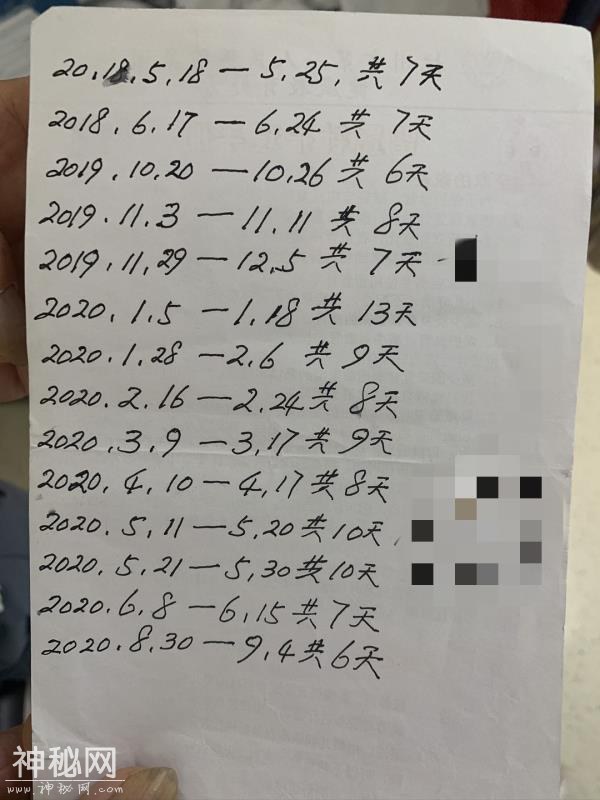 2018.5.18—5.25.共7天
2018.6.17—6.24共7天
2019.10.20—10.26共6天
2019.11.3—11.11共8天
2019.11.29—12.5共7天
2020.1.5—1.18共13天
2020.1.28—2.6共9天
2020.2.16—2.24共8天
2020.3.9—3.17共9天
2020.4.10—4.17共8天
2020.5.11—5.20共10天
2020.5.21—5.30共10天
2020.6.8—6.15共7天
2020.8.30—9.4共6天
神秘网
www.神秘网.com